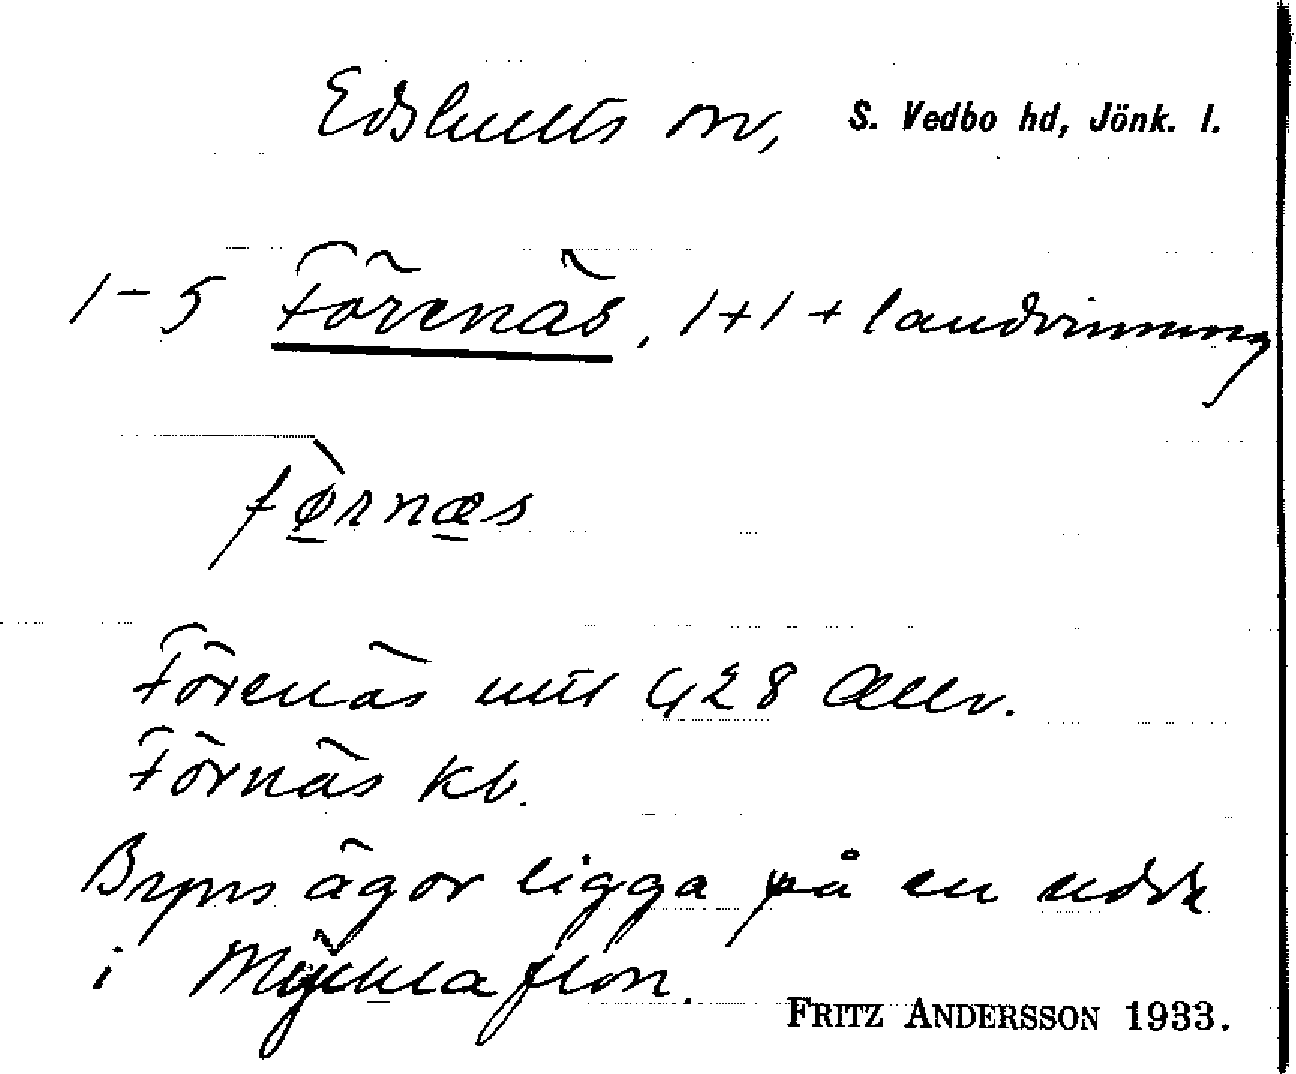 Edshults sn, S. Vedbo hd, Jönk. l.
1-5 Förenäs, 1+1 + landvinning
fø̱rnæ̱s
Förenäs uttr 428 Allv.
Förnäs kb.
Byns ägor ligga på en udde
i Mycklaflon.
FRITZ ANDERSSON 1933.